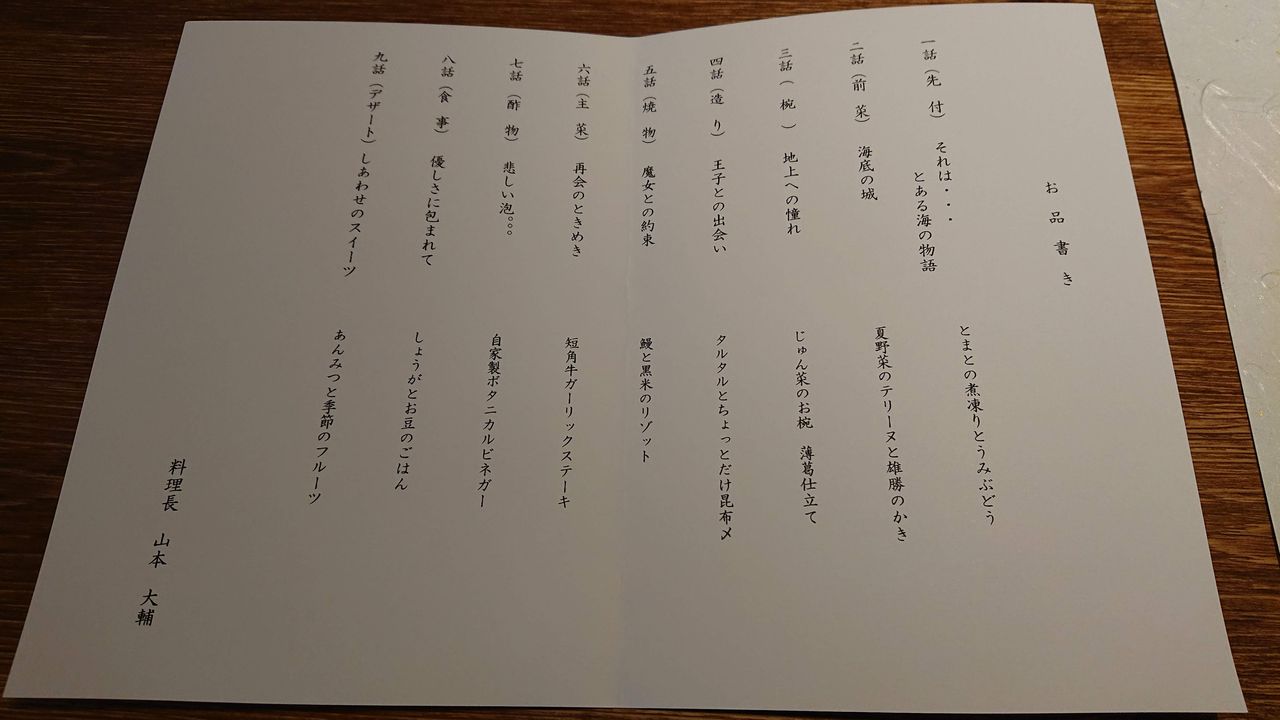 お品書き
一話（先 付） それは・・・
とある海の物語
とまとの煮凍りとうみぶどう
二話（前 菜） 海底の城
夏野菜のテリーヌと雄勝のかき
三話（ 椀 ） 地上への憧れ
じゅん菜のお椀 薄葛仕立て
四話（造 り） 王子との出会い
タルタルとちょっとだけ昆布〆
五話（焼 物） 魔女との約束
鰻と黒米のリゾット
六話（主 菜） 再会のときめき
短角牛ガーリックステーキ
七話（酢 物） 悲しい泡。。。
自家製ボタニカルビネガー
八話（食 事） 優しさに包まれて
しょうがとお豆のごはん
九話（デザート）しあわせのスイーツ
あんみつと季節のフルーツ
料理長 山本 大輔